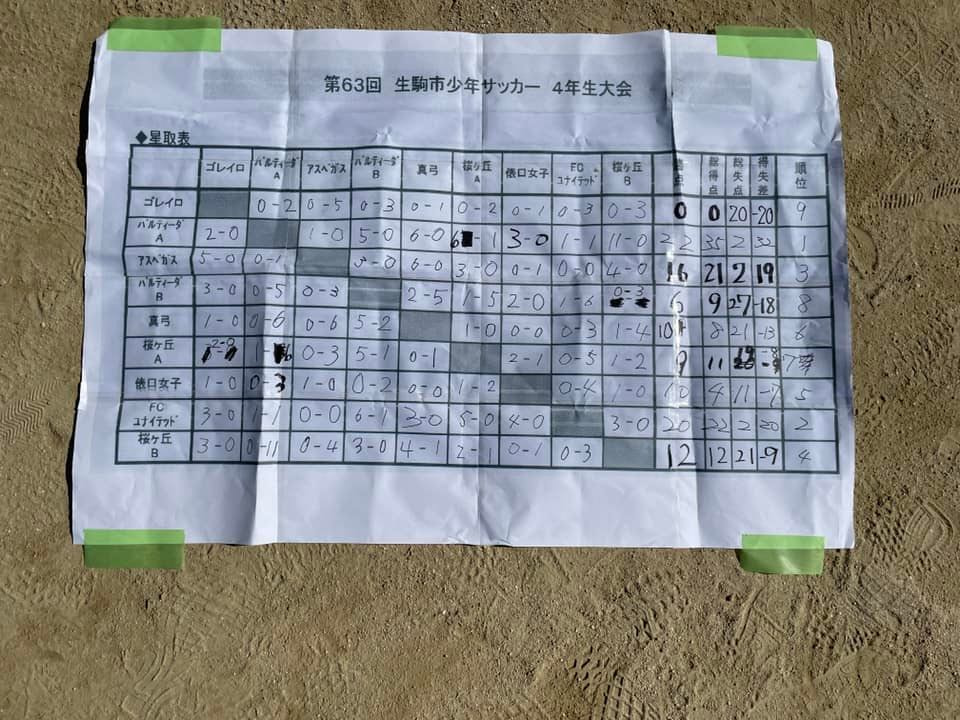 第63回 生駒市少年サッカー 4年生大会
◆星取表
ゴレイロ パルティーダA アスペガス パルティーダB 真弓 桜ヶ丘A 俵口女子 FCユナイテッド 桜ヶ丘B 勝点 総得点 総失点 得失差 順位
ゴレイロ 0-2 0-5 0-3 0-1 0-2 0-1 0-3 0-3 0 0 20 -20 9
パルティーダA 2-0 1-0 5-0 6-0 6-1 3-0 1-1 11-0 22 35 2 1
アスペガス 5-0 0-1 3-0 6-0 3-0 0-1 0-0 4-0 16 21 2 19 3
パルティーダB 3-0 0-5 0-3 2-5 1-5 2-0 1-6 0-3 6 9 27 -18 8
真弓 1-0 0-6 0-6 5-2 1-0 0-0 0-3 1-4 10 8 21 -13 6
桜ヶ丘A 2-0 1-6 0-3 5-1 0-1 2-1 0-5 1-2 9 11 19 -8 7
俵口女子 1-0 0-3 1-0 0-2 0-0 1-2 0-4 1-0 10 4 11 -7 5
FCユナイテッド 3-0 1-1 0-0 6-1 3-0 5-0 4-0 3-0 20 22 2 20 2
桜ヶ丘B 3-0 0-11 0-4 3-0 4-1 2-1 0-1 0-3 12 12 21 -9 4